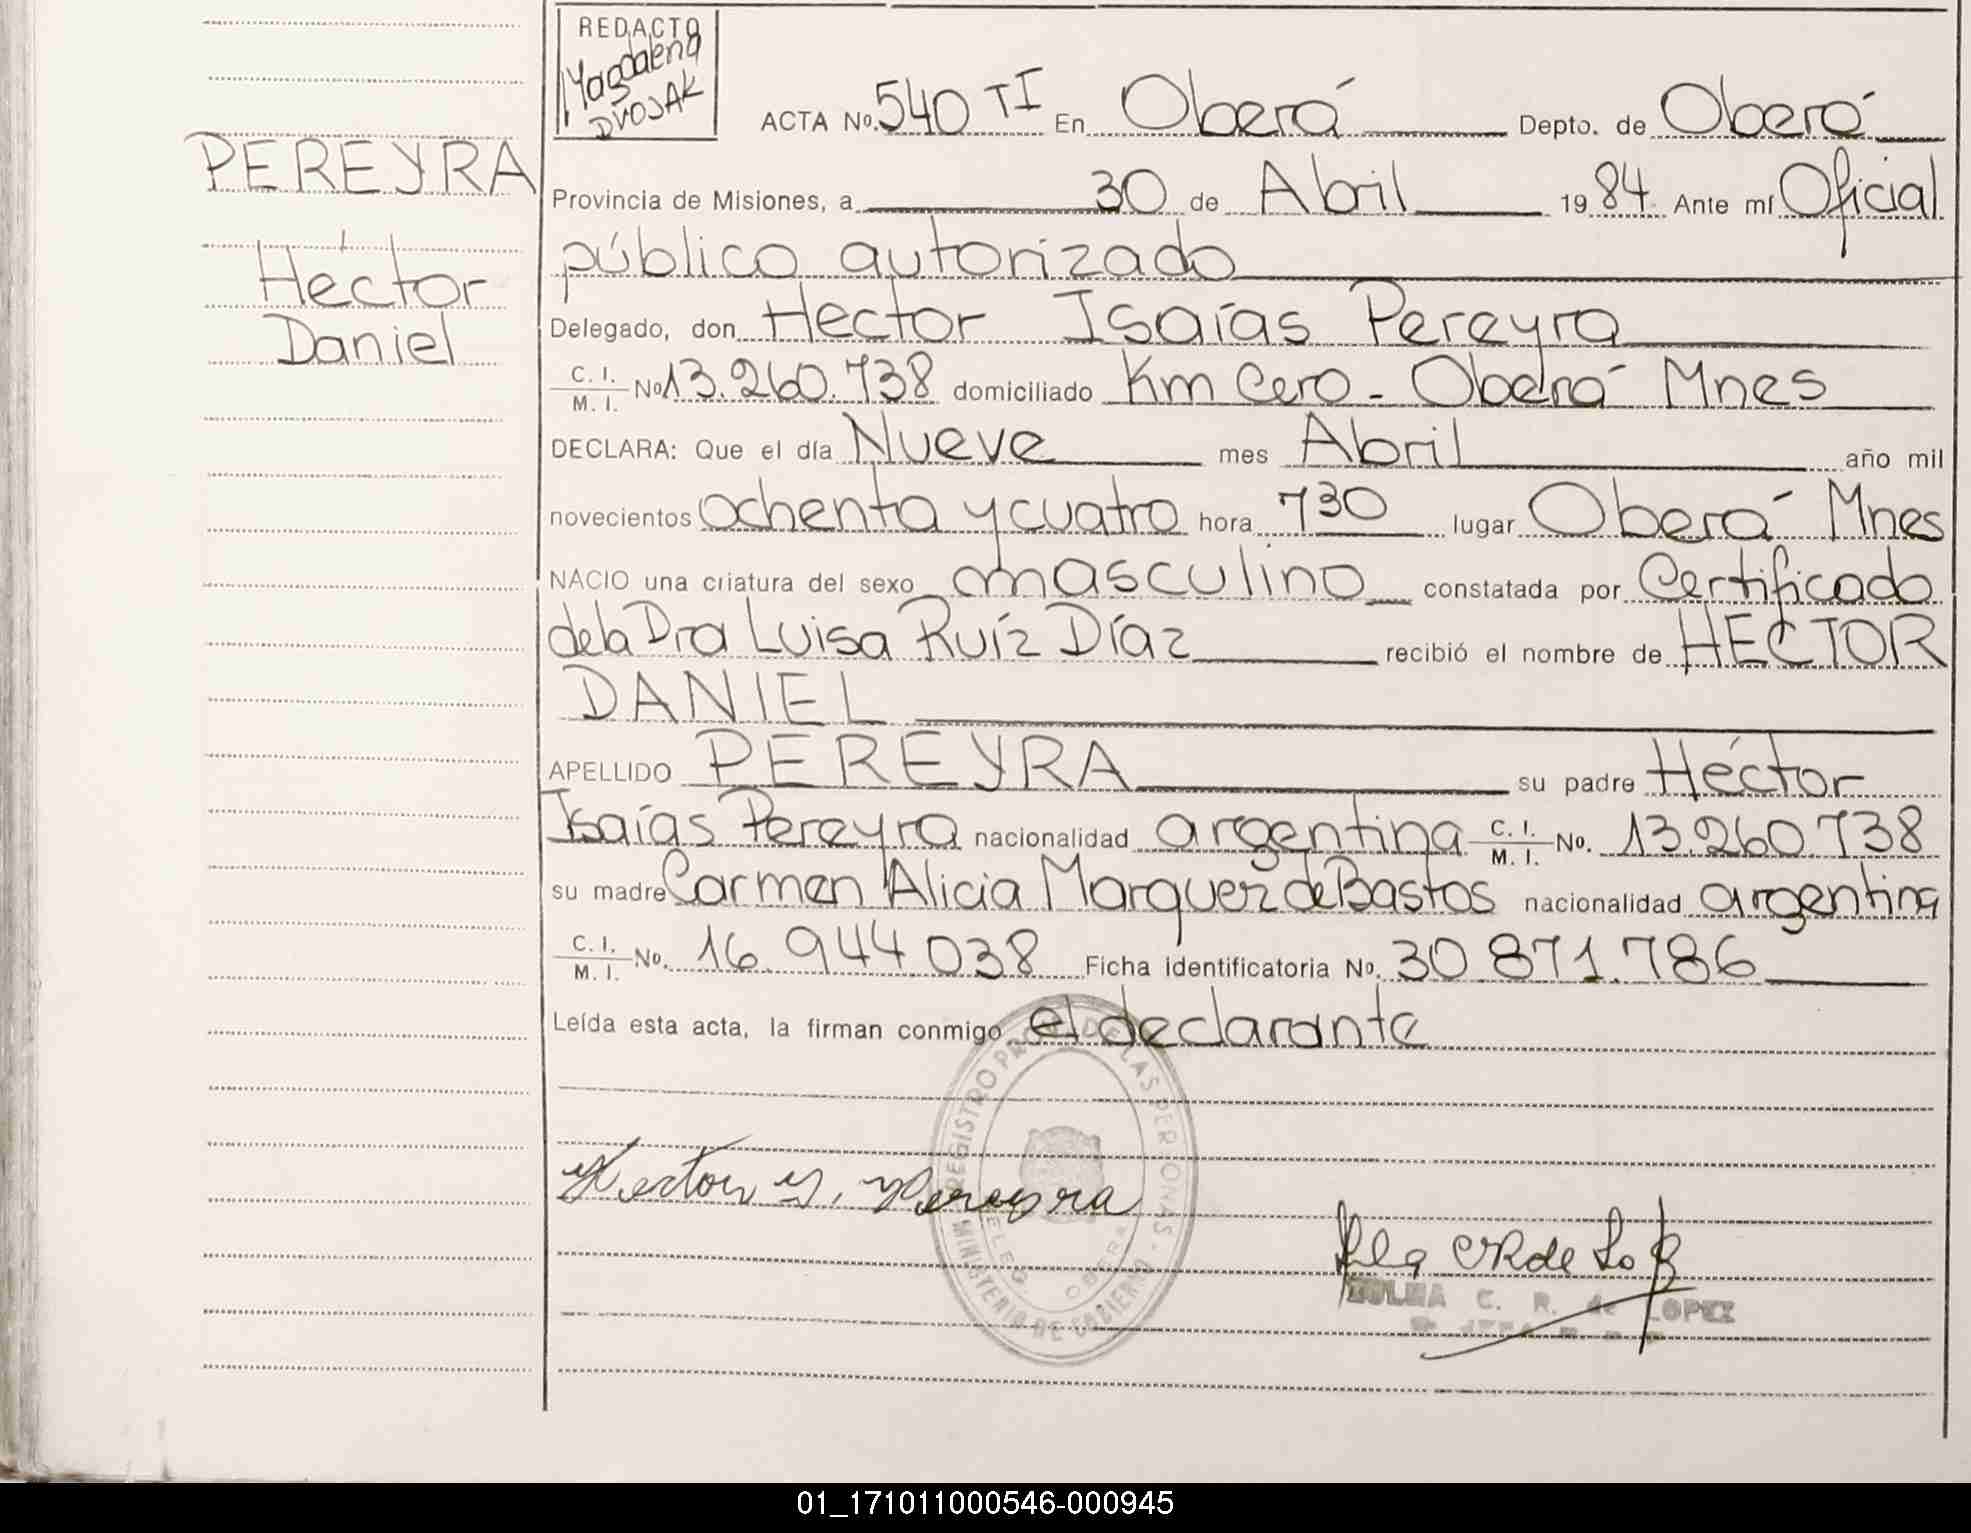 REDACTO
Magdalena
DVOJAK
ACTA No. 540 TI En Oberá Depto. de Oberá
PEREYRA
Héctor
Daniel
Provincia de Misiones, a 30 de Abril 1984 Ante mí Oficial
público autorizado
Delegado, don Hector Isaías Pereyra
C. I. / M. I. No 13.260.738 domiciliado Km Cero - Oberá Mnes
DECLARA: Que el día Nueve mes Abril año mil
novecientos ochenta y cuatro hora 730 lugar Oberá Mnes
NACIO una criatura del sexo masculino constatada por Certificado
de la Dra Luisa Ruíz Díaz recibió el nombre de HECTOR
DANIEL
APELLIDO PEREYRA su padre Héctor
Isaías Pereyra nacionalidad argentina C. I. / M. I. No. 13.260.738
su madre Carmen Alicia Marquez de Bastos nacionalidad argentina
C. I. / M. I. No. 16.944.038 Ficha identificatoria No. 30.871.786
Leída esta acta, la firman conmigo el declarante
REGISTRO PROV. DE LAS PERSONAS
MINISTERIO DE GOBIERNO
DELEG. OBERA
Hector I. Pereyra
ZULMA C. R. de LOPEZ
01_171011000546-000945